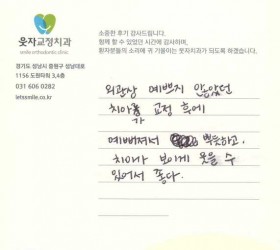 웃자교정치과
smile orthodontic clinic
경기도 성남시 중원구 성남대로
1126 도원타워 3,4층
031 606 0282
letssmile.co.kr
소중한 후기 감사드립니다.
함께 할 수 있었던 시간에 감사하며,
환자분들의 소리에 귀 기울이는 웃자치과가 되도록 하겠습니다.
외관상 예쁘지 않았던
치아가 교정 후에
예뻐져서 뿌듯하고,
치아가 보이게 웃을 수
있어서 좋다.